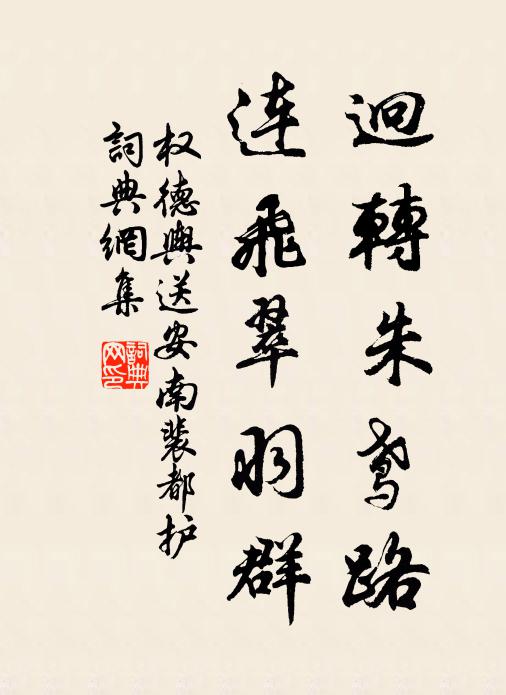 迴轉朱鸢路
連飛翠羽群
权德輿送安南裴都护
詞典網集
詞典网印